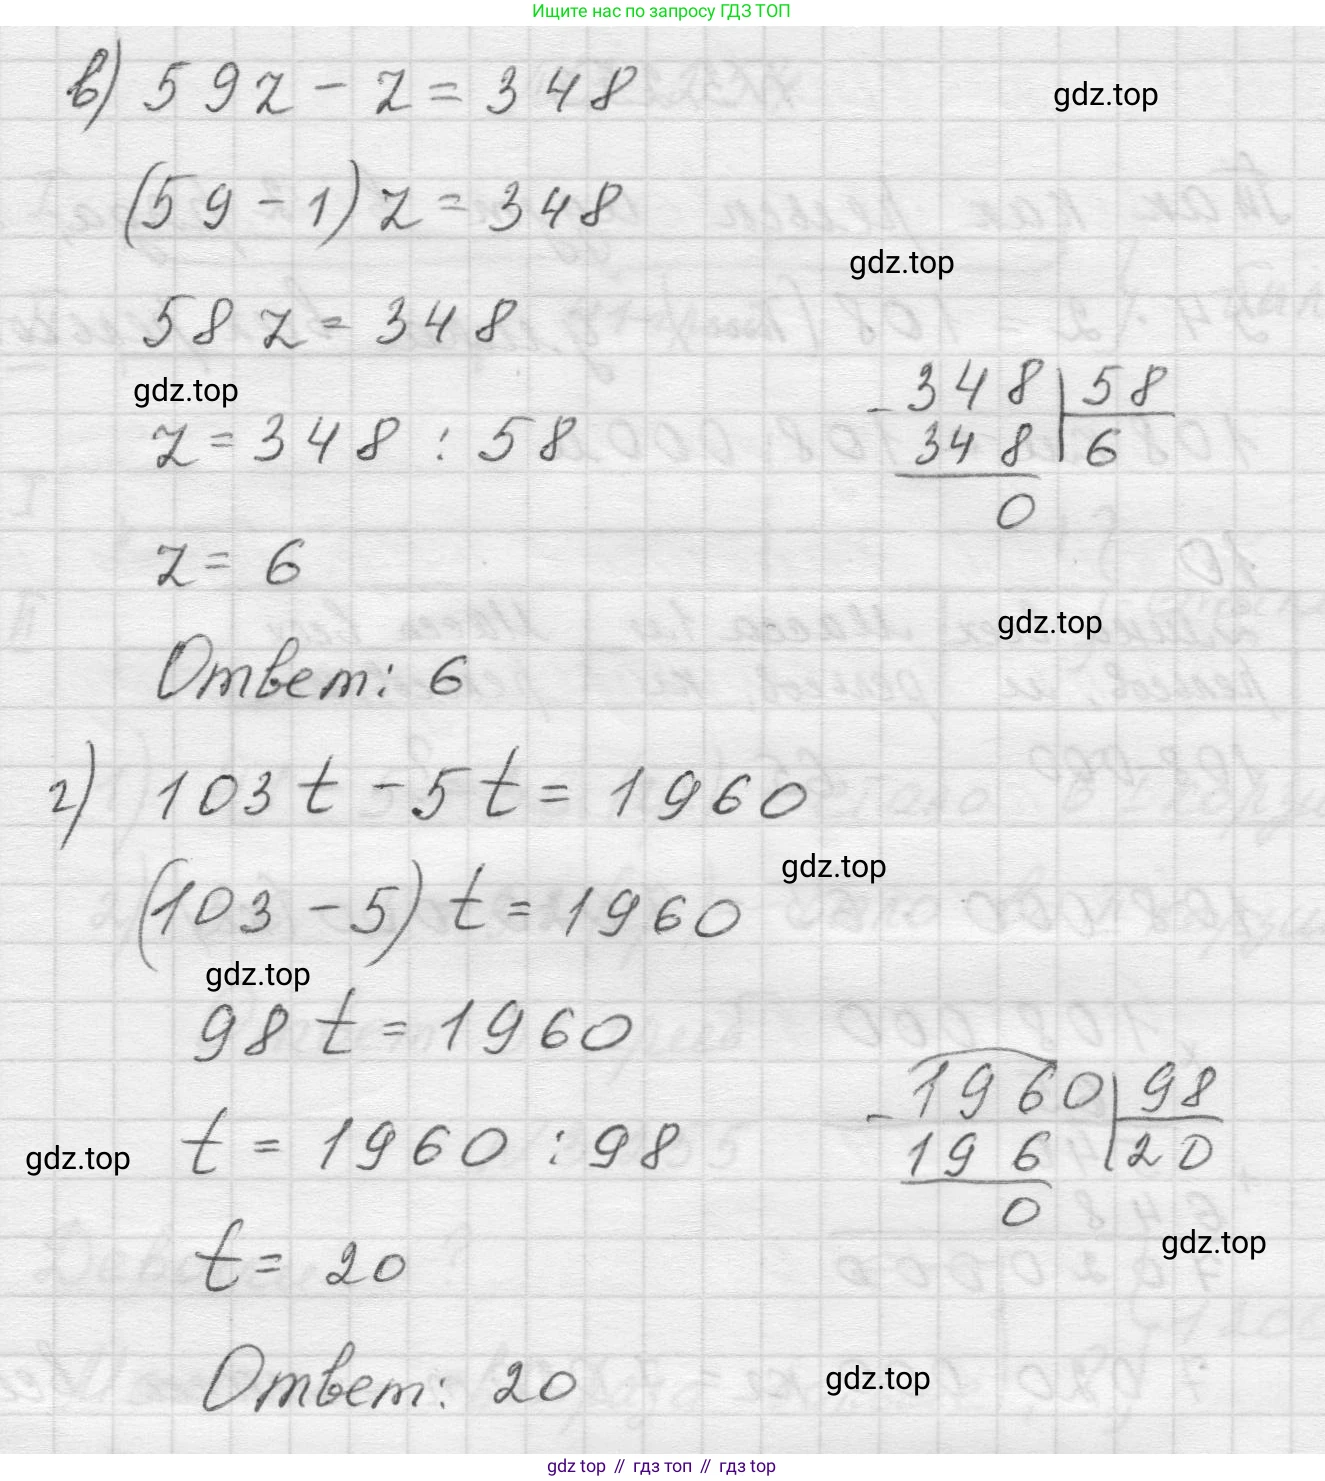 Ищите нас по запросу ГДЗ ТОП
в) 59z - z = 348
gdz.top
(59 - 1) z = 348
gdz.top
58z = 348
gdz.top
- 348 | 58
z = 348 : 58
348 | 6
0
z = 6
gdz.top
Ответ: 6
г) 103t - 5t = 1960
gdz.top
(103 - 5) t = 1960
gdz.top
98t = 1960
- 1960 | 98
gdz.top
t = 1960 : 98
196 | 20
0
gdz.top
t = 20
gdz.top
Ответ: 20
gdz top // гдз топ // гдз top